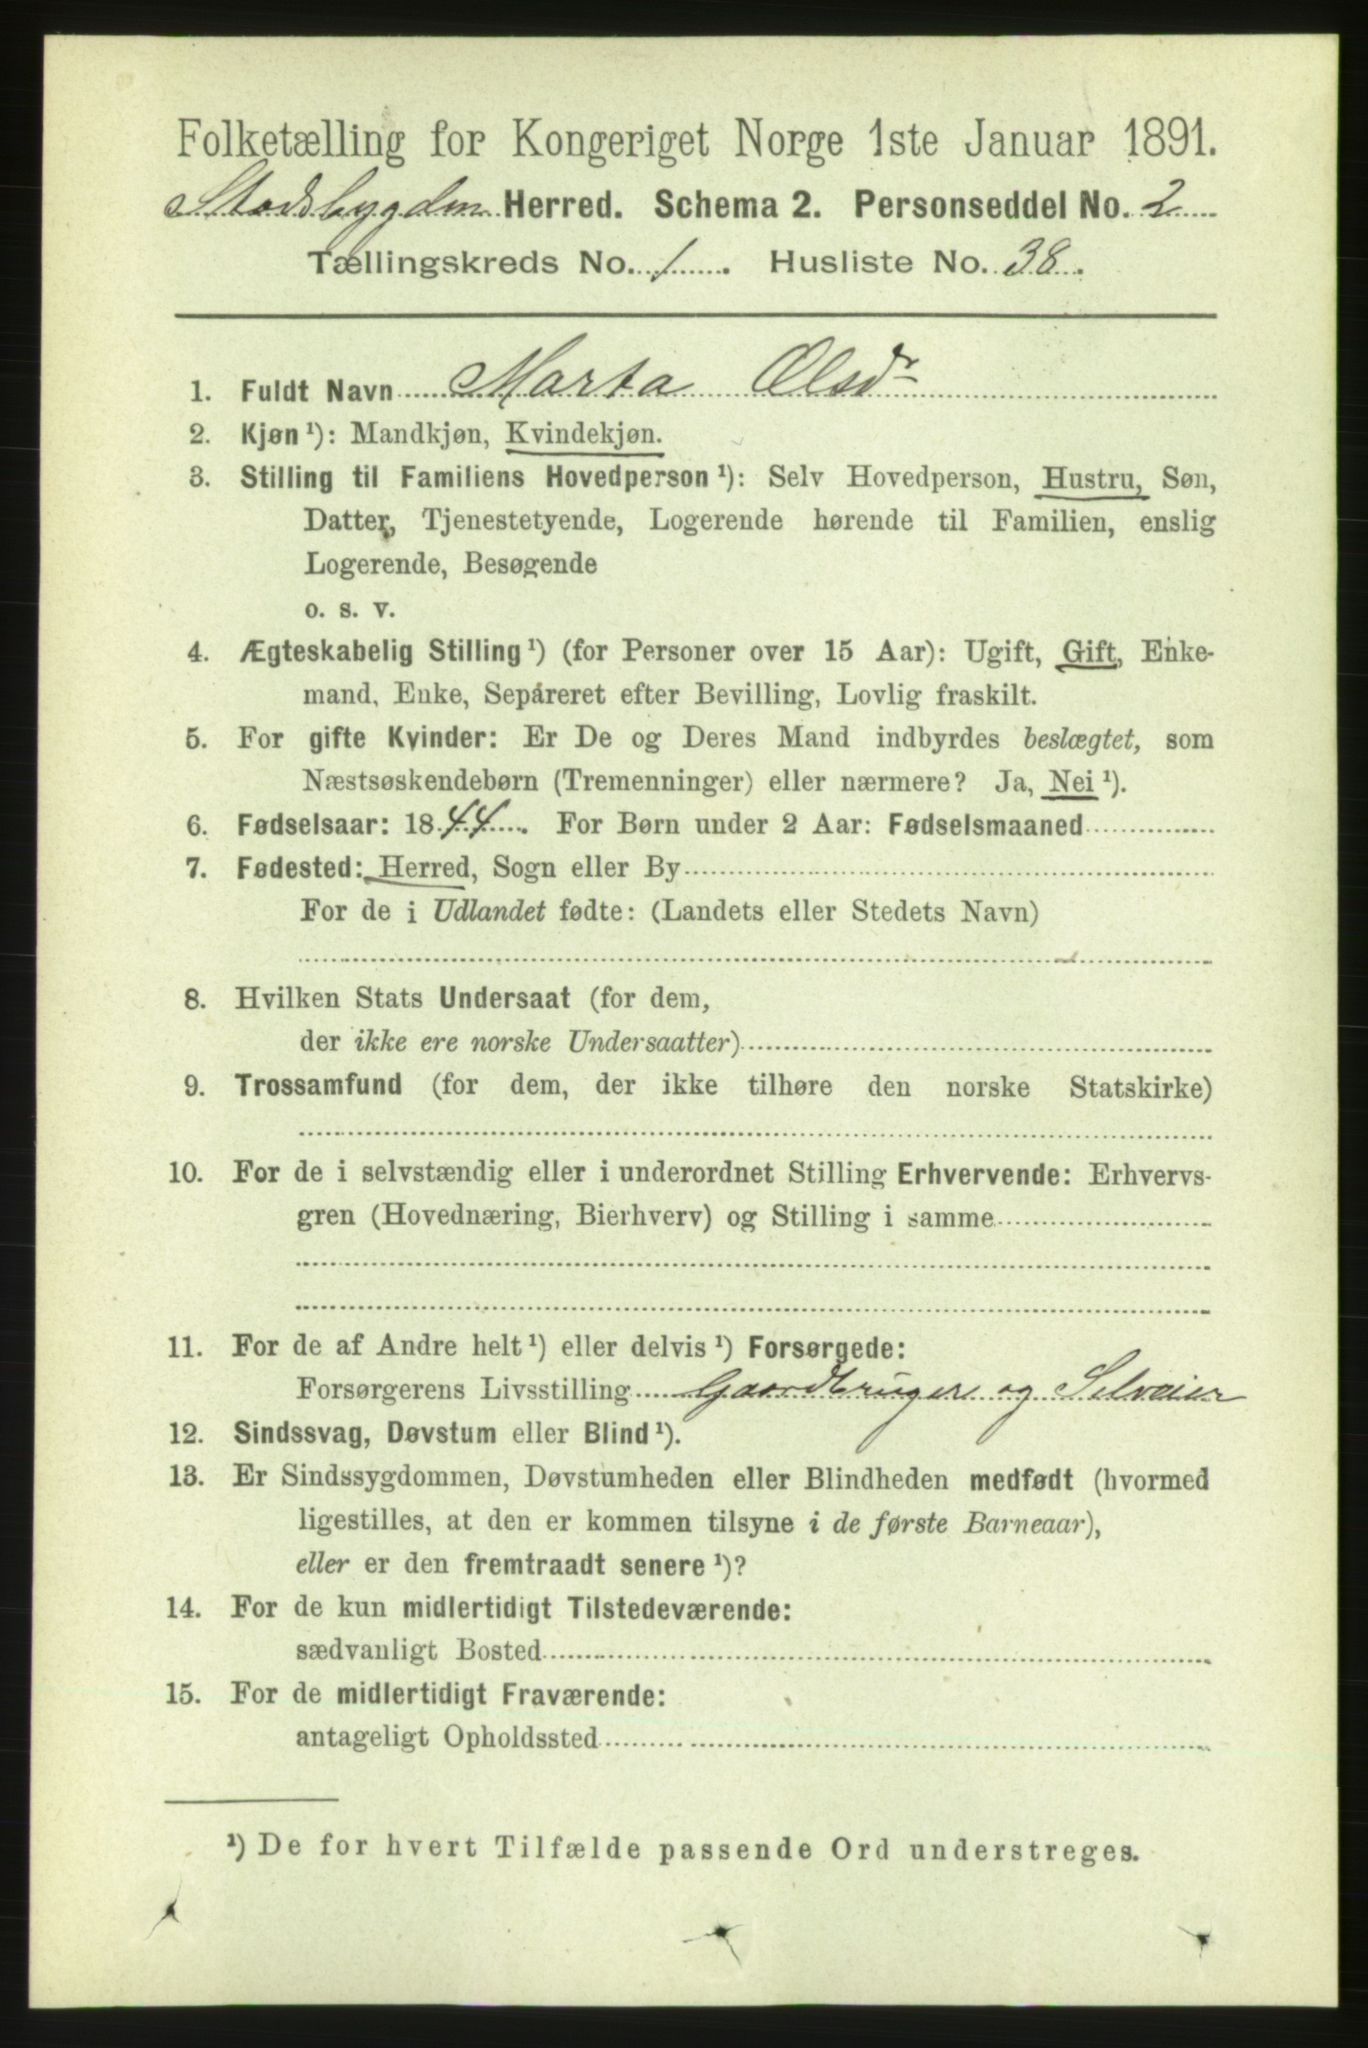 Folketælling for Kongeriget Norge 1ste Januar 1891.
Stadsbygden Herred. Schema 2. Personseddel No. 2
Tællingskreds No. 1. Husliste No. 38.
1. Fuldt Navn Marta Olsdr
2. Kjøn ¹): Mandkjøn, Kvindekjøn.
3. Stilling til Familiens Hovedperson ¹): Selv Hovedperson, Hustru, Søn,
Datter, Tjenestetyende, Logerende hørende til Familien, enslig
Logerende, Besøgende
o. s. v.
4. Ægteskabelig Stilling ¹) (for Personer over 15 Aar): Ugift, Gift, Enke-
mand, Enke, Separeret efter Bevilling, Lovlig fraskilt.
5. For gifte Kvinder: Er De og Deres Mand indbyrdes beslægtet, som
Næstsøskendebørn (Tremenninger) eller nærmere? Ja, Nei ¹).
6. Fødselsaar: 1844. For Børn under 2 Aar: Fødselsmaaned
7. Fødested: Herred, Sogn eller By
For de i Udlandet fødte: (Landets eller Stedets Navn)
8. Hvilken Stats Undersaat (for dem,
der ikke ere norske Undersaatter)
9. Trossamfund (for dem, der ikke tilhøre den norske Statskirke)
10. For de i selvstændig eller i underordnet Stilling Erhvervende: Erhvervs-
gren (Hovednæring, Bierhverv) og Stilling i samme
11. For de af Andre helt ¹) eller delvis ¹) Forsørgede:
Forsørgerens Livsstilling Gaardbruger og Selveier
12. Sindssvag, Døvstum eller Blind ¹).
13. Er Sindssygdommen, Døvstumheden eller Blindheden medfødt (hvormed
ligestilles, at den er kommen tilsyne i de første Barneaar),
eller er den fremtraadt senere ¹)?
14. For de kun midlertidigt Tilstedeværende:
sædvanligt Bosted
15. For de midlertidigt Fraværende:
antageligt Opholdssted
¹) De for hvert Tilfælde passende Ord understreges.